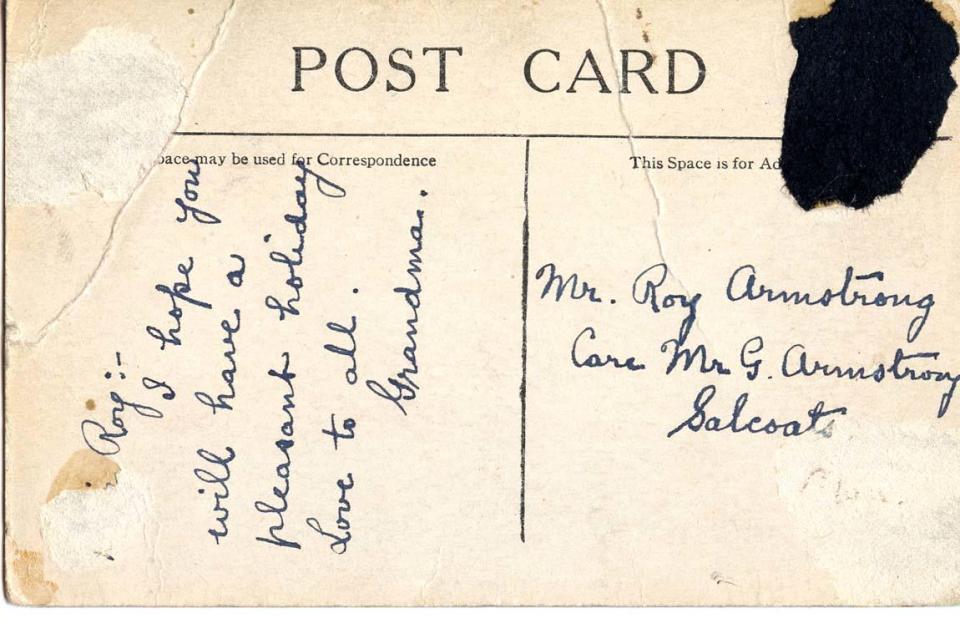 POST CARD
pace may be used for Correspondence
This Space is for Ad
Roy:-
I hope you
will have a
pleasant holiday
Love to all.
Grandma.
Mr. Roy Armstrong
Care Mr G. Armstrong
Salcoats